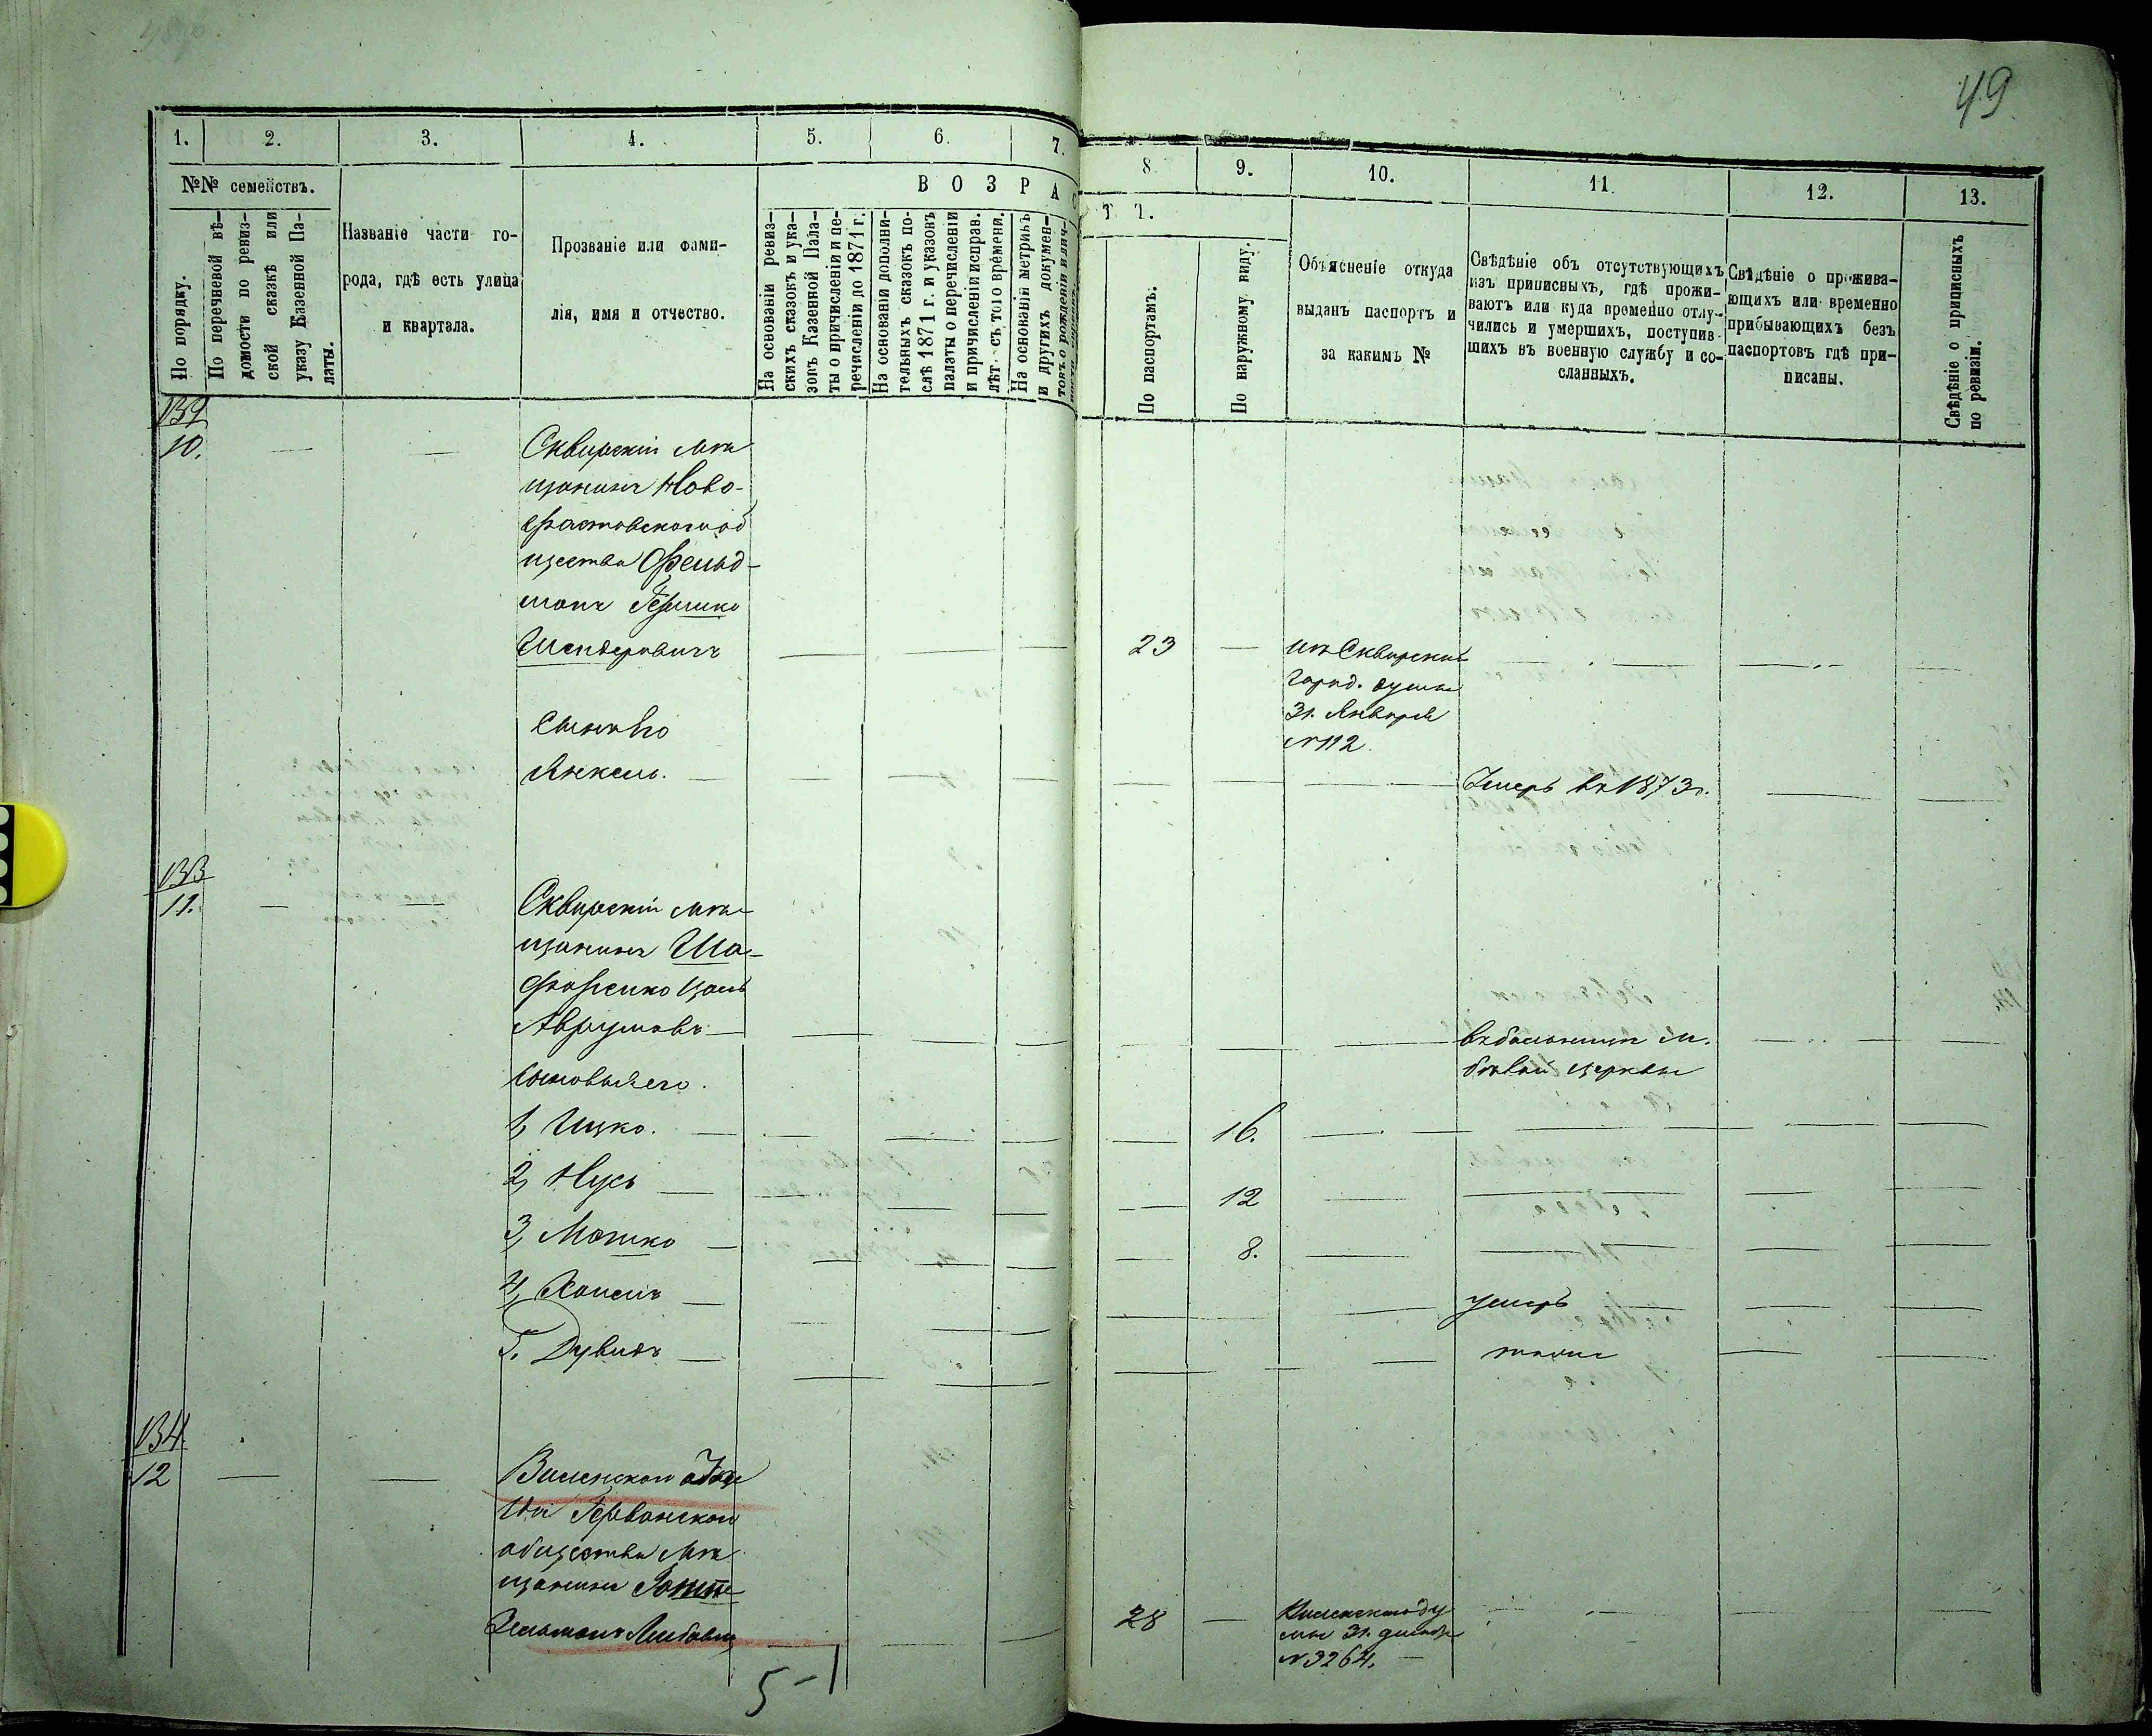 49
1. 2. 3. 4. 5. 6. 7. 8. 9. 10. 11. 12. 13.
№№ семействъ.
По порядку.
По перечневой вѣ-
домости по ревиз-
ской сказкѣ или
указу Казенной Па-
латы.
Названіе части го-
рода, гдѣ есть улица
и квартала.
Прозваніе или фами-
лія, имя и отчество.
В О З Р А С Т Ъ.
На основаніи ревиз-
скихъ сказокъ и ука-
зовъ Казенной Пала-
ты о причисленіи и пе-
речисленіи до 1871 г.
На основаніи дополни-
тельныхъ сказокъ по-
слѣ 1871 г. и указовъ
палаты о перечисленіи
и причисленіи исправ.
лѣт. съ того времени.
На основаніи метрикъ
и другихъ докумен-
товъ о рожденіи и лич-
По паспортамъ.
По наружному виду.
Объясненіе откуда
выданъ паспортъ и
за какимъ №
Свѣдѣніе объ отсутствующихъ
изъ приписныхъ, гдѣ прожи-
ваютъ или куда временно отлу-
чились и умершихъ, поступив-
шихъ въ военную службу и со-
сланныхъ.
Свѣдѣніе о прожива-
ющихъ или временно
прибывающихъ безъ
паспортовъ гдѣ при-
писаны.
Свѣдѣніе о приписныхъ
по ревизіи.
132
10.
Сквирскій мѣ
щанинъ Ново-
фастовскаго об
щества Фельд-
манъ Гершко
Шендеровичъ
23
изъ Сквирской
Город. думы
31. Января
№ 112
Сынъ его
Янкель.
Умеръ въ 1873 г.
133
11.
Сквирскій мѣ-
щанинъ Ша-
форенко
Аврумовъ
въ м.
бѣлой церкви
Сыновья его.
1, Ицко.
16.
2, Нусь
12
3, Мошко
8.
4,
умеръ
5. Дувидъ
тоже
134
12
Виленской
общества мѣ
щанинъ
28
31.
№ 3264.
5-1